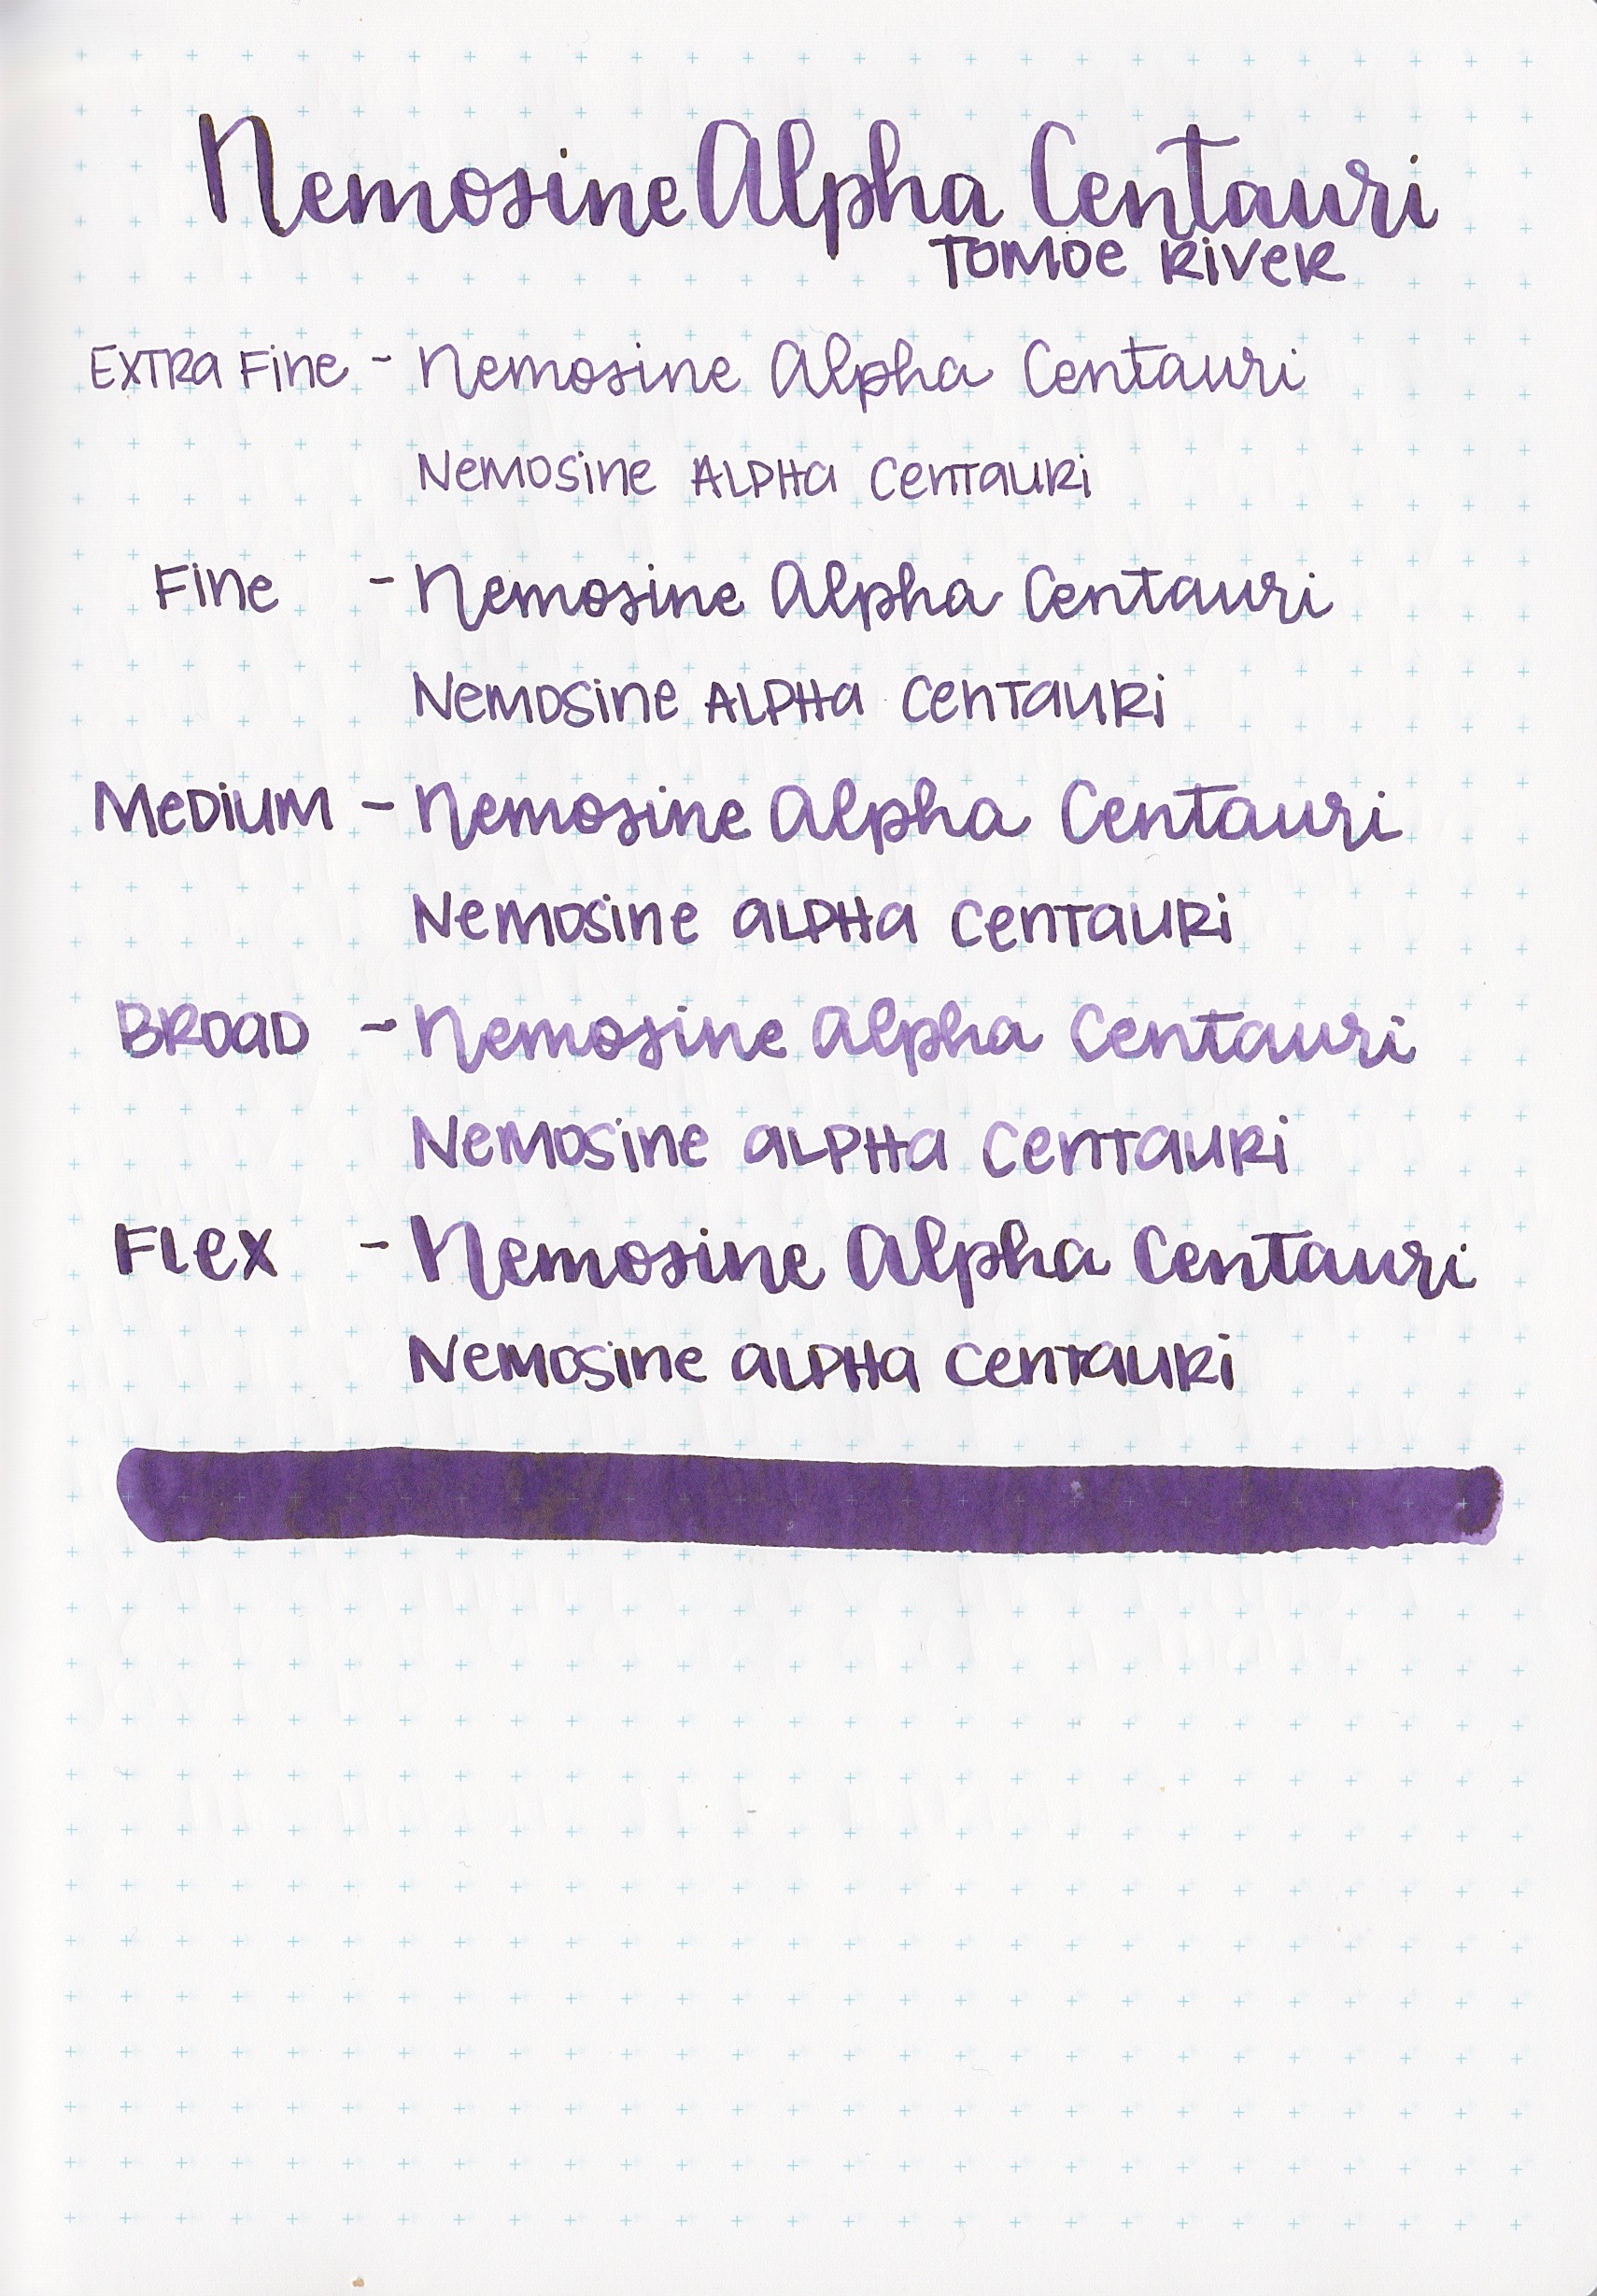 Nemosine Alpha Centauri
TOMOE RiVeR
EXTRa Fine - Nemosine Alpha Centauri
NeMOSine ALPHa CenTauRi
Fine - Nemosine Alpha Centauri
NeMOSine ALPHa CenTauRi
MeDiuM - Nemosine Alpha Centauri
NeMOSine aLPHa CenTauRi
BROaD - Nemosine Alpha Centauri
NeMOSine aLPHa CenTauRi
FLex - Nemosine Alpha Centauri
NeMOSine aLPHa CenTauRi